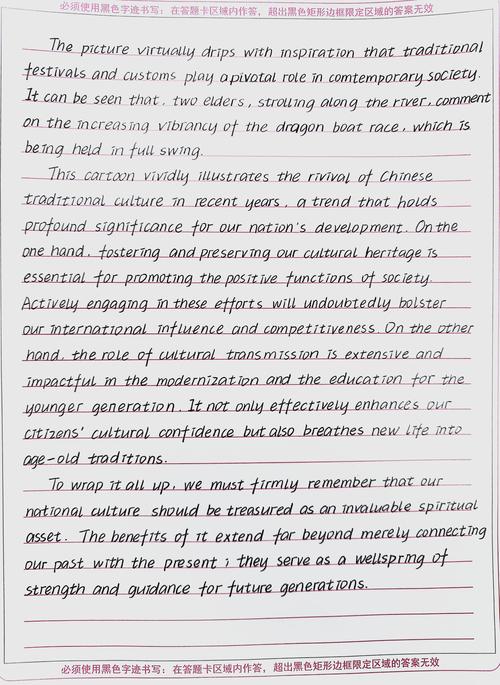 必须使用黑色字迹书写：在答题卡区域内作答，超出黑色矩形边框限定区域的答案无效
The picture virtually drips with inspiration that traditional
festivals and customs play a pivotal role in comtemporary society.
It can be seen that, two elders, strolling along the river, comment
on the increasing vibrancy of the dragon boat race, which is
being held in full swing.
This cartoon vividly illustrates the rivival of Chinese
traditional culture in recent years, a trend that holds
profound significance for our nation's development. On the
one hand, fostering and preserving our cultural heritage is
essential for promoting the positive functions of society.
Actively engaging in these efforts will undoubtedly bolster
our international influence and competitiveness. On the other
hand, the role of cultural transmission is extensive and
impactful in the modernization and the education for the
younger generation. It not only effectively enhances our
citizens' cultural confidence but also breathes new life into
age-old traditions.
To wrap it all up, we must firmly remember that our
national culture should be treasured as an invaluable spiritual
asset. The benefits of it extend far beyond merely connecting
our past with the present; they serve as a wellspring of
strength and guidance for future generations.
必须使用黑色字迹书写：在答题卡区域内作答，超出黑色矩形边框限定区域的答案无效